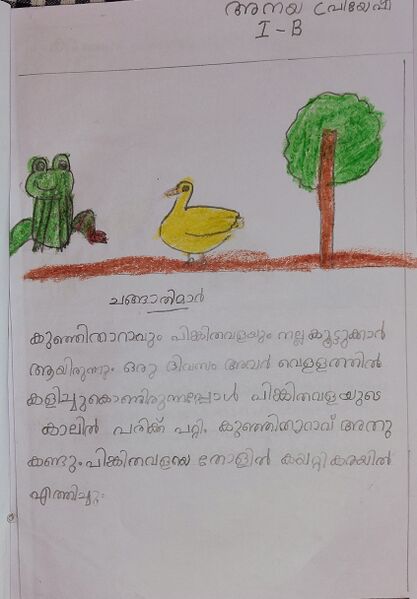 അനയ പ്രിയേഷ്
I - B
ചങ്ങാതിമാർ
കുഞ്ഞിതാറാവും പിങ്കിതവളയും നല്ല കൂട്ടുക്കാർ
ആയിരുന്നും ഒരു ദിവസം അവർ വെള്ളത്തിൽ
കളിച്ചുകൊണ്ടിരുന്നപ്പോൾ പിങ്കിതവളയുടെ
കാലിൽ പരിക്ക് പറ്റി. കുഞ്ഞിതാറാവ് അതു
കണ്ടും പിങ്കിതവളയെ തോളിൽ കയറ്റി കരയിൽ
എത്തിച്ചും